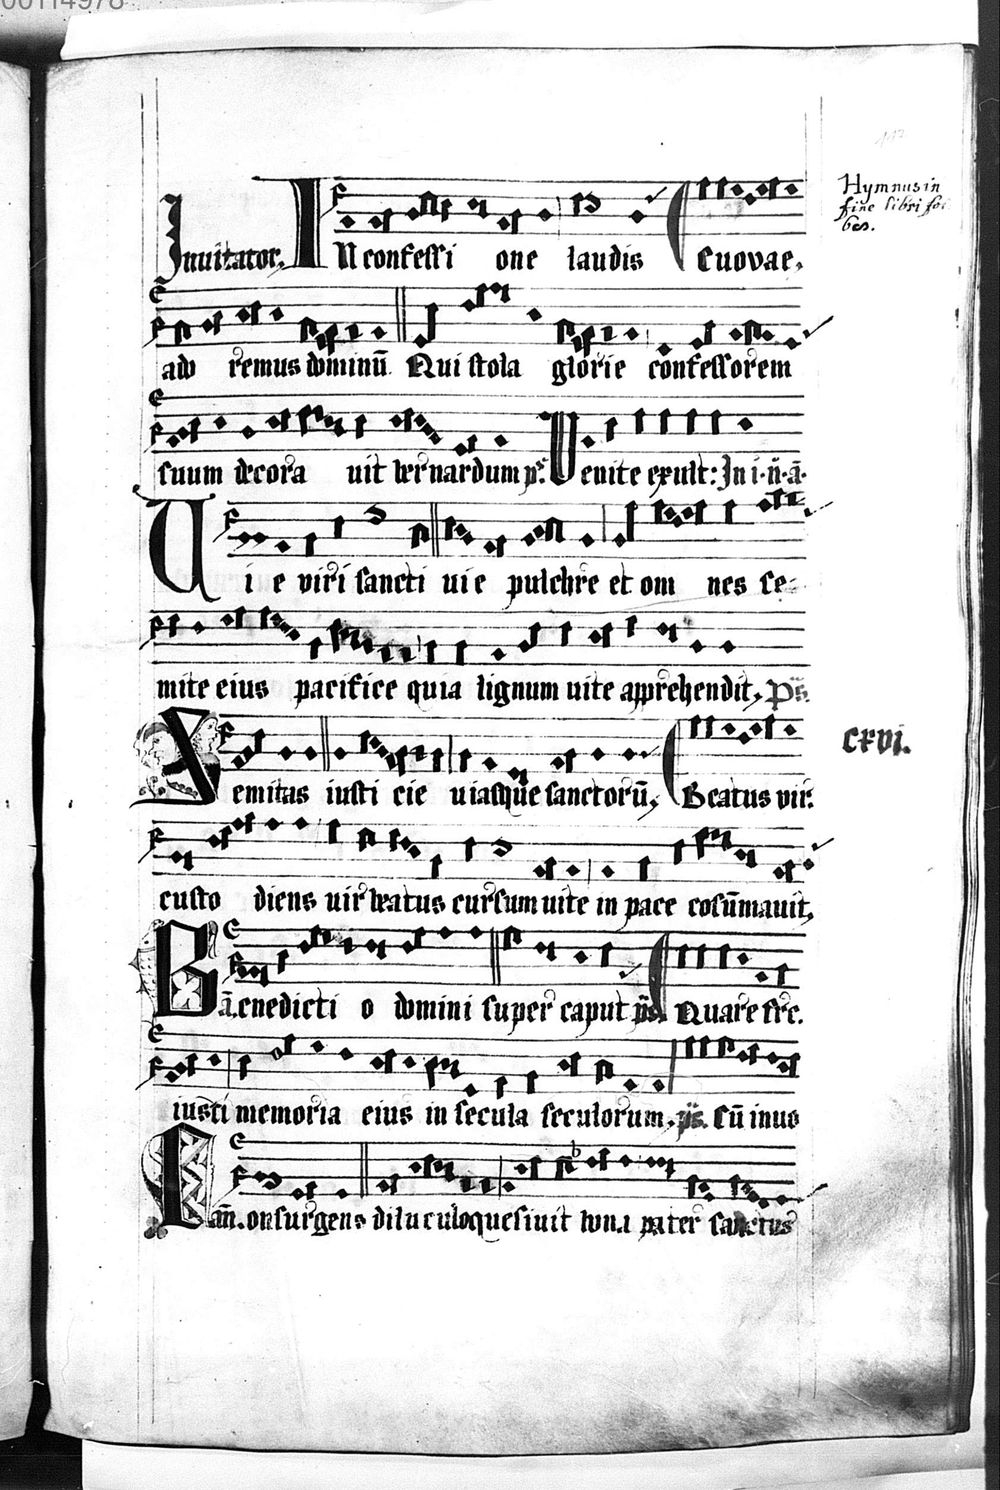 00114978
Hymnus in
fine libri
Inuitator. IN confessi one laudis Euovae.
ad remus dominū Qui stola glorie confessorem
suum decora uit bernardum ps. Venite exult: In i. n. a.
Vi e viri sancti uie pulchre et om nes se
mite eius pacifice quia lignum uite apprehendit, Ps.
Semitas iusti cie uiasque sanctorū, Beatus vir.
cxvi.
custo diens uir beatus cursum uite in pace cosūmauit,
Bā. enedicti o domini super caput ps. Quare fre.
iusti memoria eius in secula seculorum, ps. Cū inuo
an. onsurgens diluculo quesiuit bona pater sanctus